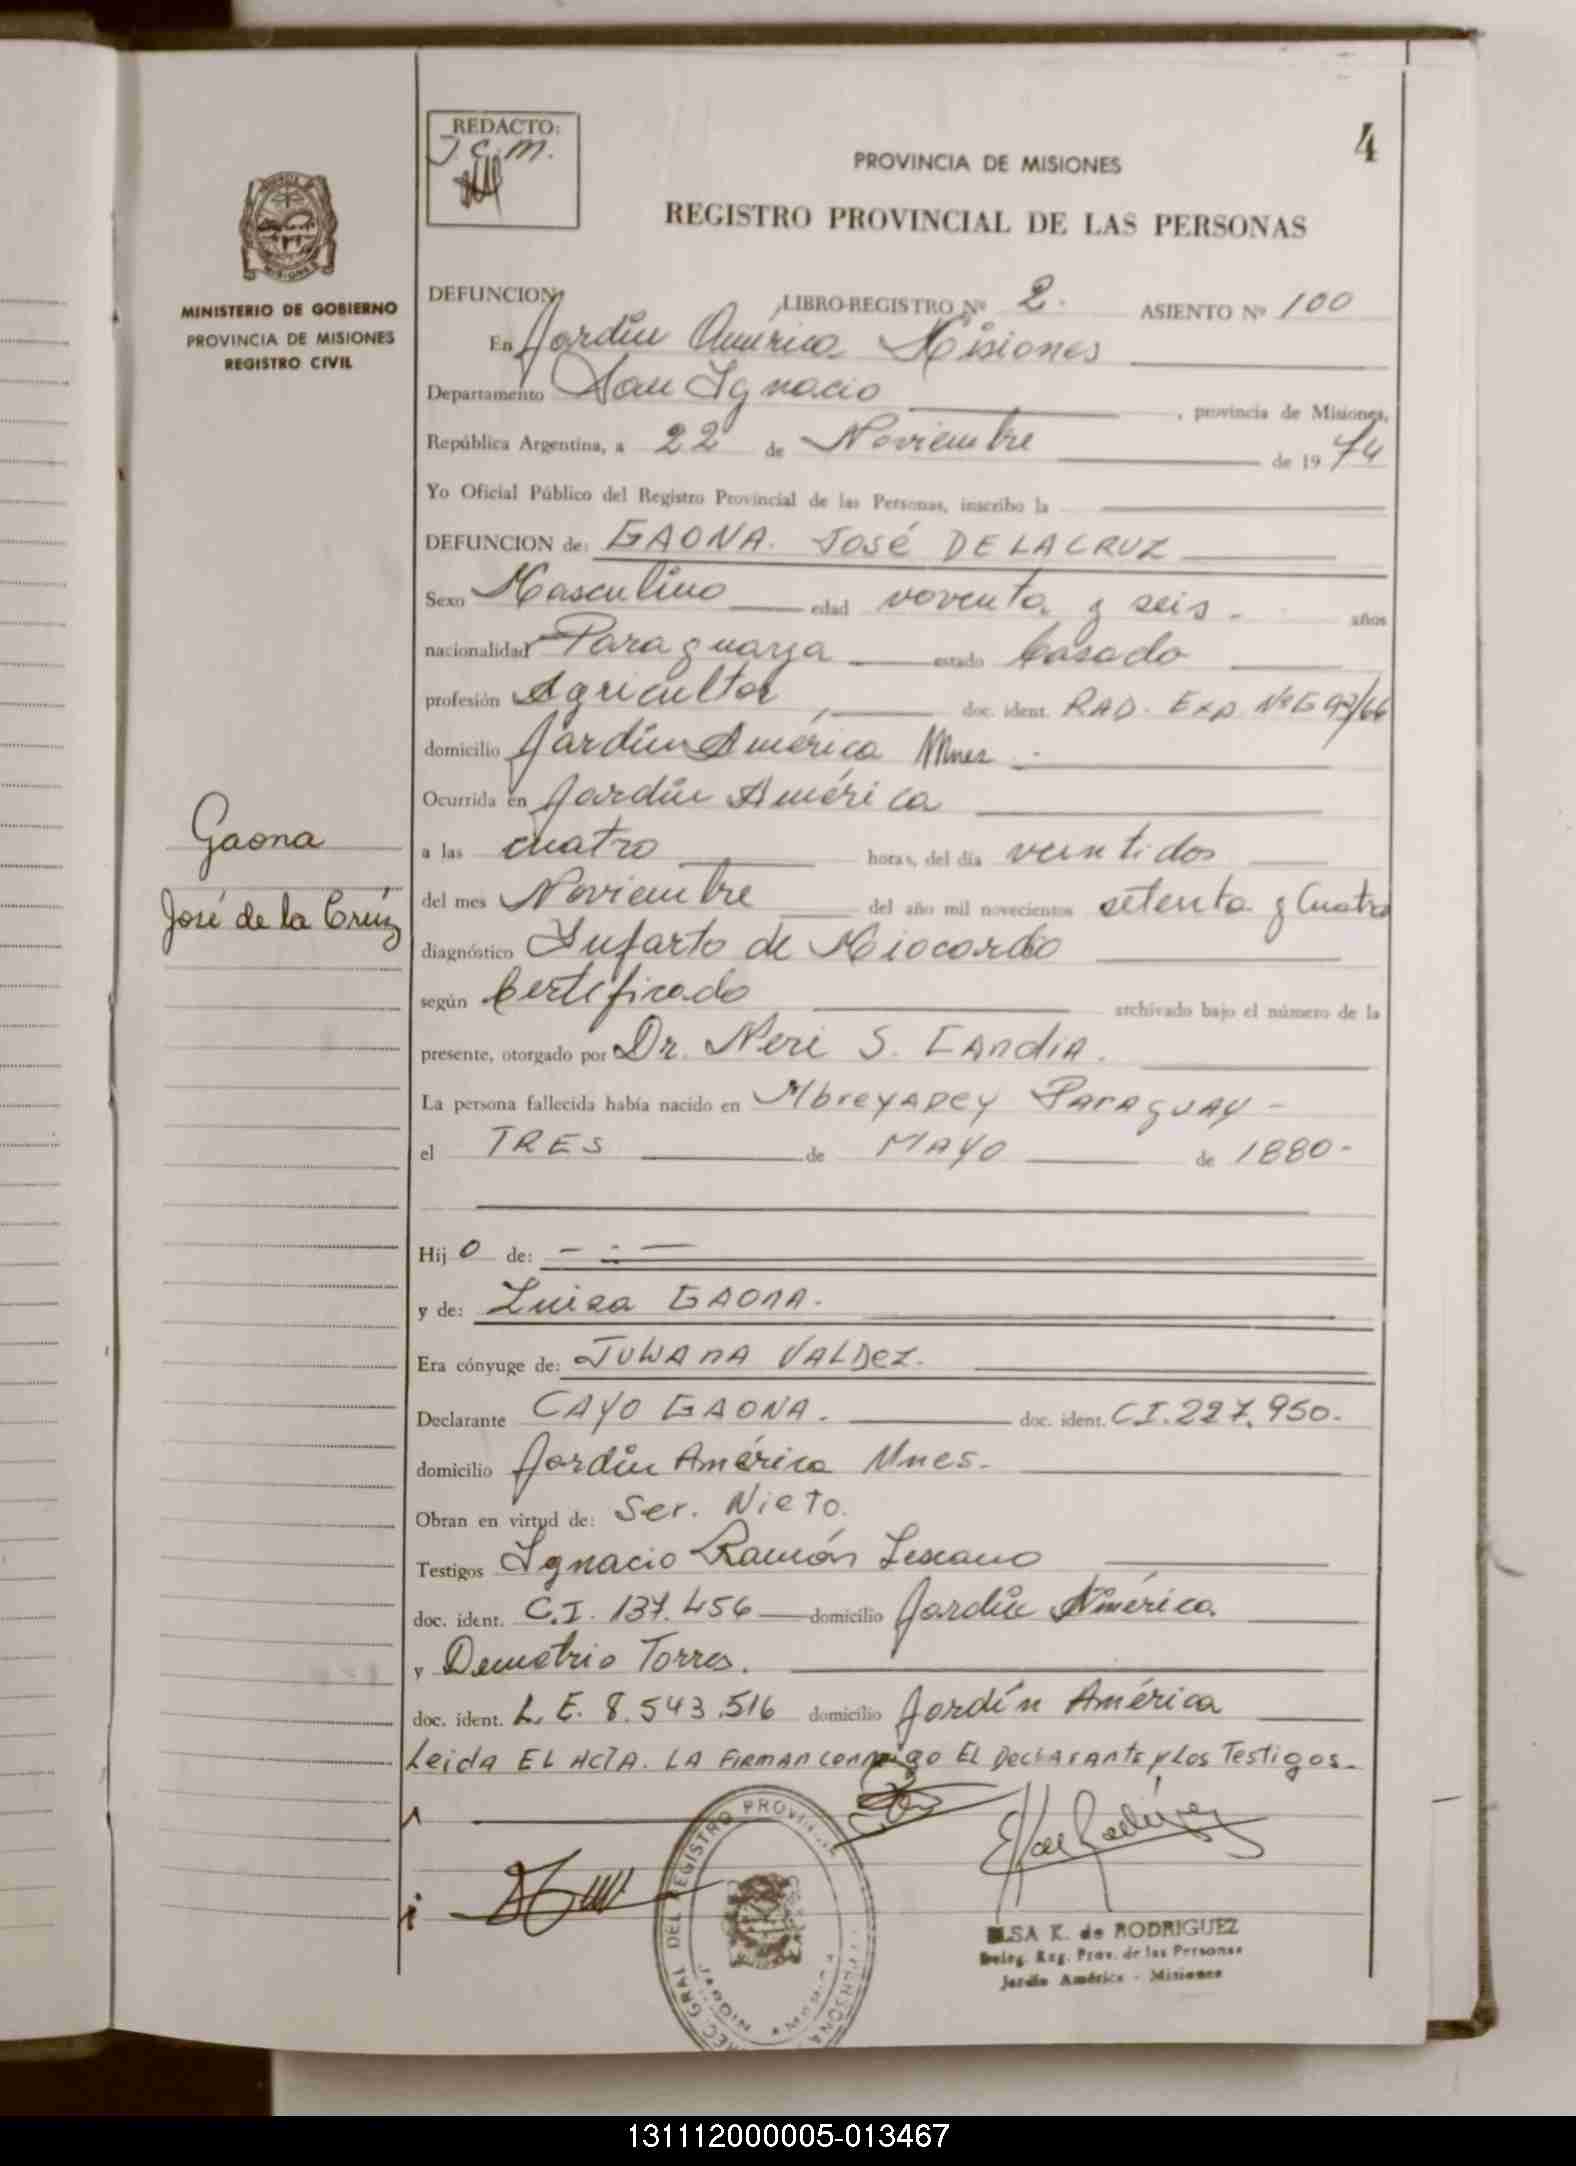 REDACTO:
J.C.M.
4
PROVINCIA DE MISIONES
REGISTRO PROVINCIAL DE LAS PERSONAS
MINISTERIO DE GOBIERNO
PROVINCIA DE MISIONES
REGISTRO CIVIL
DEFUNCION LIBRO-REGISTRO Nº 2. ASIENTO Nº 100
En Jardín América Misiones
Departamento San Ignacio, provincia de Misiones,
República Argentina, a 22 de Noviembre de 1974
Yo Oficial Público del Registro Provincial de las Personas, inscribo la
DEFUNCION de: GAONA. José DE LA CRUZ
Sexo Masculino edad noventa y seis - años
nacionalidad Paraguaya estado Casado
profesión Agricultor, doc. ident. RAD. Exp. Nº
domicilio Jardín América Mnes -
Ocurrida en Jardín América
Gaona
José de la Crúz
a las cuatro horas, del día veintidos
del mes Noviembre del año mil novecientos setenta y Cuatro
diagnóstico Infarto de Miocardio
según Certificado archivado bajo el número de la
presente, otorgado por Dr. Neri S. CANDIA.
La persona fallecida había nacido en MbreyAPey PARAGUAY -
el TRES de MAYO de 1880-
Hijo de: - . -
y de: Luisa GAONA.
Era cónyuge de: JULIANA VALDEZ.
Declarante CAYO GAONA. doc. ident. C.I. 227.950.
domicilio Jardín América Mnes.
Obran en virtud de: Ser. Nieto.
Testigos Ignacio Ramón Lescano
doc. ident. C.I. 137.456 domicilio Jardín América
y Demetrio Torres.
doc. ident. L.E. 8.543.516 domicilio Jardín América
Leida EL ACTA. LA FIRMAN conmigo EL DecLARANTe y Los Testigos.
ELSA K. de RODRIGUEZ
Deleg. Reg. Prov. de las Personas
Jardín América - Misiones
131112000005-013467